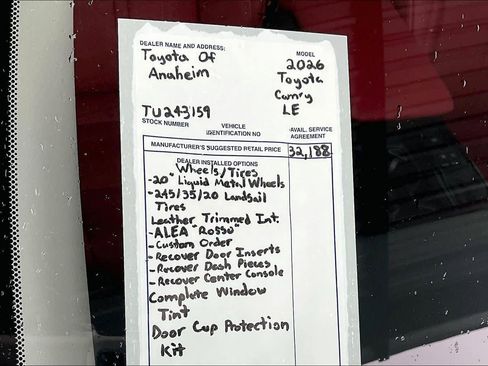 DEALER NAME AND ADDRESS:
Toyota Of
Anaheim
MODEL
2026
Toyota
Camry
LE
TU243159
STOCK NUMBER
VEHICLE
IDENTIFICATION NO
AVAIL. SERVICE
AGREEMENT
MANUFACTURER'S SUGGESTED RETAIL PRICE
32,188
DEALER INSTALLED OPTIONS
Wheels/Tires
-20" Liquid Metal Wheels
-245/35/20 Landsail
Tires
Leather Trimmed Int.
-ALEA "Rosso"
-Custom Order
-Recover Door Inserts
-Recover Dash Pieces
-Recover Center Console
Complete Window
Tint
Door Cup Protection
Kit